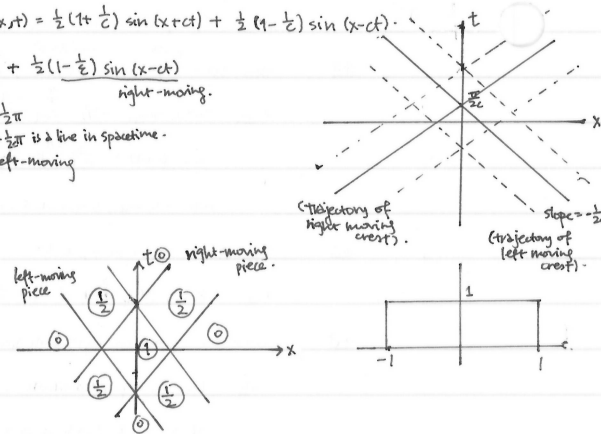 x,t) = ½(1+1/c) sin(x+ct) + ½(1-1/c) sin(x-ct).
+ ½(1-1/c) sin(x-ct)
right-moving.
½π
-½π is a line in spacetime.
left-moving
t
π/2c
x
(trajectory of
right moving
crest).
slope = -1/
(trajectory of
left moving
crest).
left-moving
piece
t
0
right-moving
piece.
½
½
0
1
0
x
½
½
0
1
-1
1